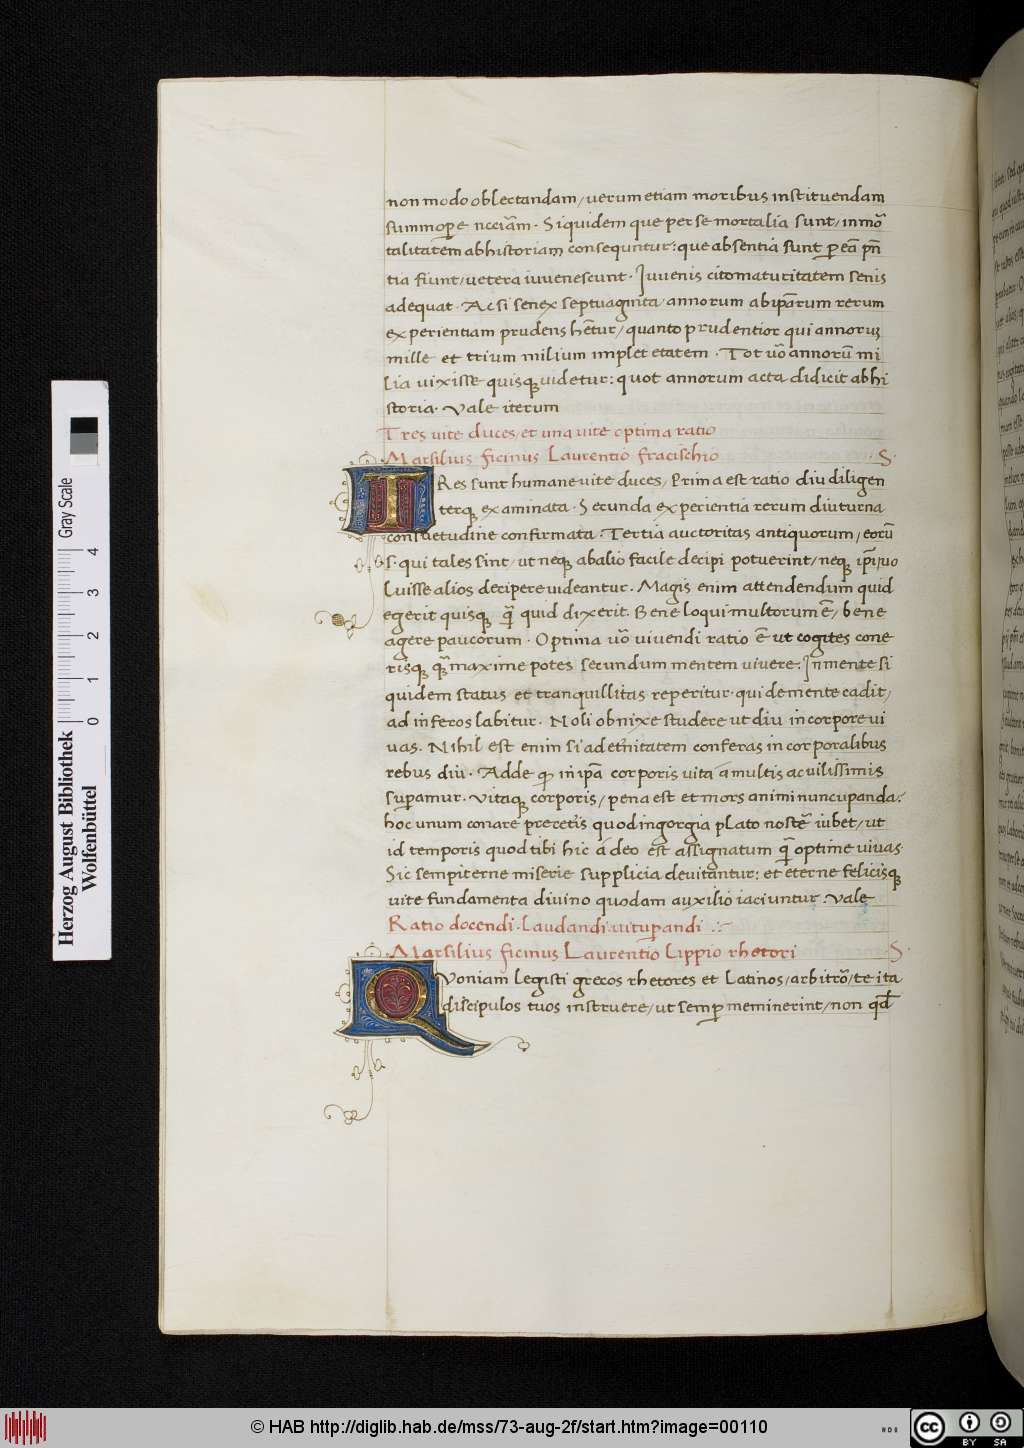 non modo oblectandam, uerum etiam moribus instituendam
summope̅ ncciãm. Siquidem que per se mortalia sunt, inmo͞
talitatem ab historiam consequntur: que absentia sunt p̲ eã pn̅
tia fiunt, uetera iuuenescunt. Iuuenis cito maturitatem senis
adequat. Ac si senex septuaginta, annorum ab ip̅arum rerum
experientiam prudens he̅tur, quanto prudentior qui annoruꝫ
mille et trium milium implet etatem. Tot uo̅ annoru̅ mi
lia uixisse quisqꝫ uidetur: quot annorum acta didicit ab hi
storia. Vale iterum
Tres uite duces, et una uite optima ratio
Marsilius ficinus Laurentio fracischio S.
TRes sunt humane uite duces, Prima est ratio diu diligen
terqꝫ examinata. Secunda experientia rerum diuturna
consuetudine confirmata. Tertia auctoritas antiquorum, eoru̅
s. qui tales sint, ut neqꝫ ab alio facile decipi potuerint, neqꝫ ip̅i uo
luisse alios decipere uideantur. Magis enim attendendum quid
egerit quisqꝫ q̅ quid dixerit. Bene loqui multorum e̅, bene
agere paucorum. Optima uo̅ uiuendi ratio e̅ ut cogites cone
risqꝫ q̅ maxime potes secundum mentem uiuere. In mente si
quidem status et tranquillitas reperitur. qui de mente cadit,
ad inferos labitur. Noli obnixe studere ut diu in corpore ui
uas. Nihil est enim si ad et̅nitatem conferas in corporalibus
rebus diu. Adde qꝫ in ip̅a corporis uita a multis ac uilissimis
sup̲amur. Vitaqꝫ corporis, pena est et mors animi nuncupanda.
hoc unum conare precetis quod in gorgia plato noste̅ iubet, ut
id temporis quod tibi hic a deo est assignatum q̅ optime uiuas.
Sic sempiterne miserie supplicia deuitantur: et eterne felicisqꝫ
uite fundamenta diuino quodam auxilio iaciuntur. Vale
Ratio docendi. Laudandi. uitup̲andi
Marsilius ficinus Laurentio Lippio rhetori S.
QVoniam legisti grecos rhetores et Latinos, arbitro̅, te ita
discipulos tuos instruere, ut semp̲ meminerint, non qd̅
Herzog August Bibliothek
Wolfenbüttel
Gray Scale
0 1 2 3 4
© HAB http://diglib.hab.de/mss/73-aug-2f/start.htm?image=00110
cc BY SA